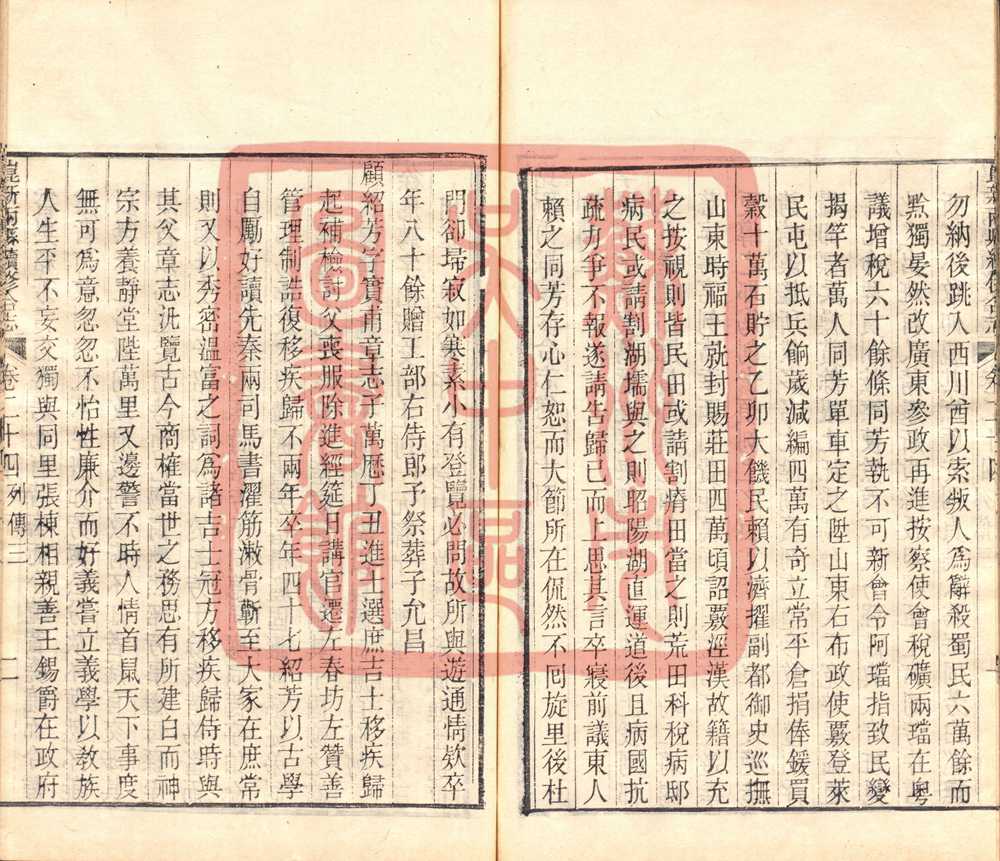 勿納後跳入西川酋以索叛人爲辭殺蜀民六萬餘而
黔獨晏然改廣東參政再進按察使會稅礦兩璫在粤
議增稅六十餘條同芳執不可新會令阿璫指致民變
揭竿者萬人同芳單車定之陞山東右布政使覈登萊
民屯以抵兵餉歲減編四萬有奇立常平倉捐俸鍰買
穀十萬石貯之乙卯大饑民賴以濟擢副都御史巡撫
山東時福王就封賜莊田四萬頃詔覈涇漢故籍以充
之按視則皆民田或請割瘠田當之則荒田科稅病邸
病民或請割湖壖與之則昭陽湖直運道後且病國抗
疏力爭不報遂請告歸已而上思其言卒寢前議東人
賴之同芳存心仁恕而大節所在侃然不囘旋里後杜
門卻埽寂如寒素小有登覽必問故所與遊通情欸卒
年八十餘贈工部右侍郎予祭葬子允昌
顧紹芳字實甫章志子萬歷丁丑進士選庶吉士移疾歸
起補檢討父喪服除進經筵日講官遷左春坊左贊善
管理制誥復移疾歸不兩年卒年四十七紹芳以古學
自勵好讀先秦兩司馬書濯筋漱骨蘄至大家在庶常
則又以秀密溫富之詞爲諸吉士冠方移疾歸侍時與
其父章志汎覽古今商榷當世之務思有所建白而神
宗方養靜堂陛萬里又邊警不時人情首鼠天下事度
無可爲意忽忽不怡性廉介而好義嘗立義學以教族
人生平不妄交獨與同里張棟相親善王錫爵在政府
崑新兩縣續修合志 卷二十四 列傳三 二